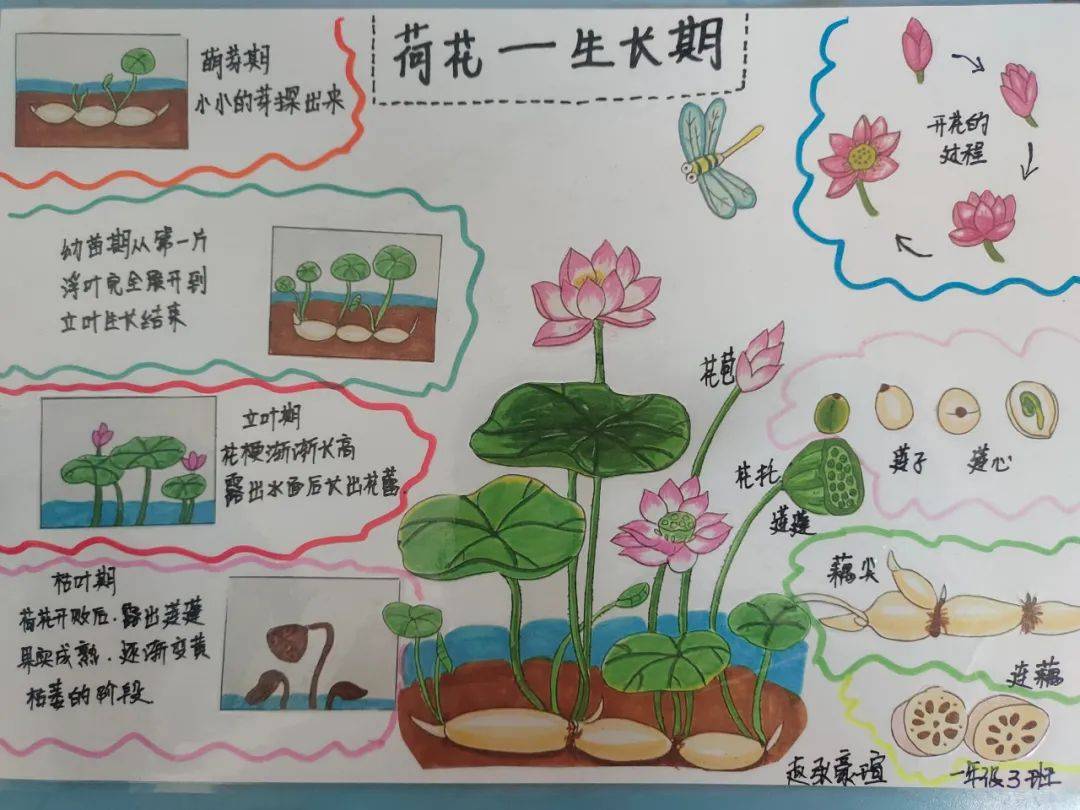 荷花一生长期
萌芽期
小小的芽探出来
幼苗期从第一片
浮叶完全展开到
立叶生长结束
立叶期
花梗渐渐长高
露出水面后长出花蕾.
枯叶期
荷花开败后.露出莲蓬
果实成熟.逐渐变黄
枯萎的阶段
开花的
过程
花苞
花托
莲蓬
莲子
莲心
藕尖
连藕
一年级3班